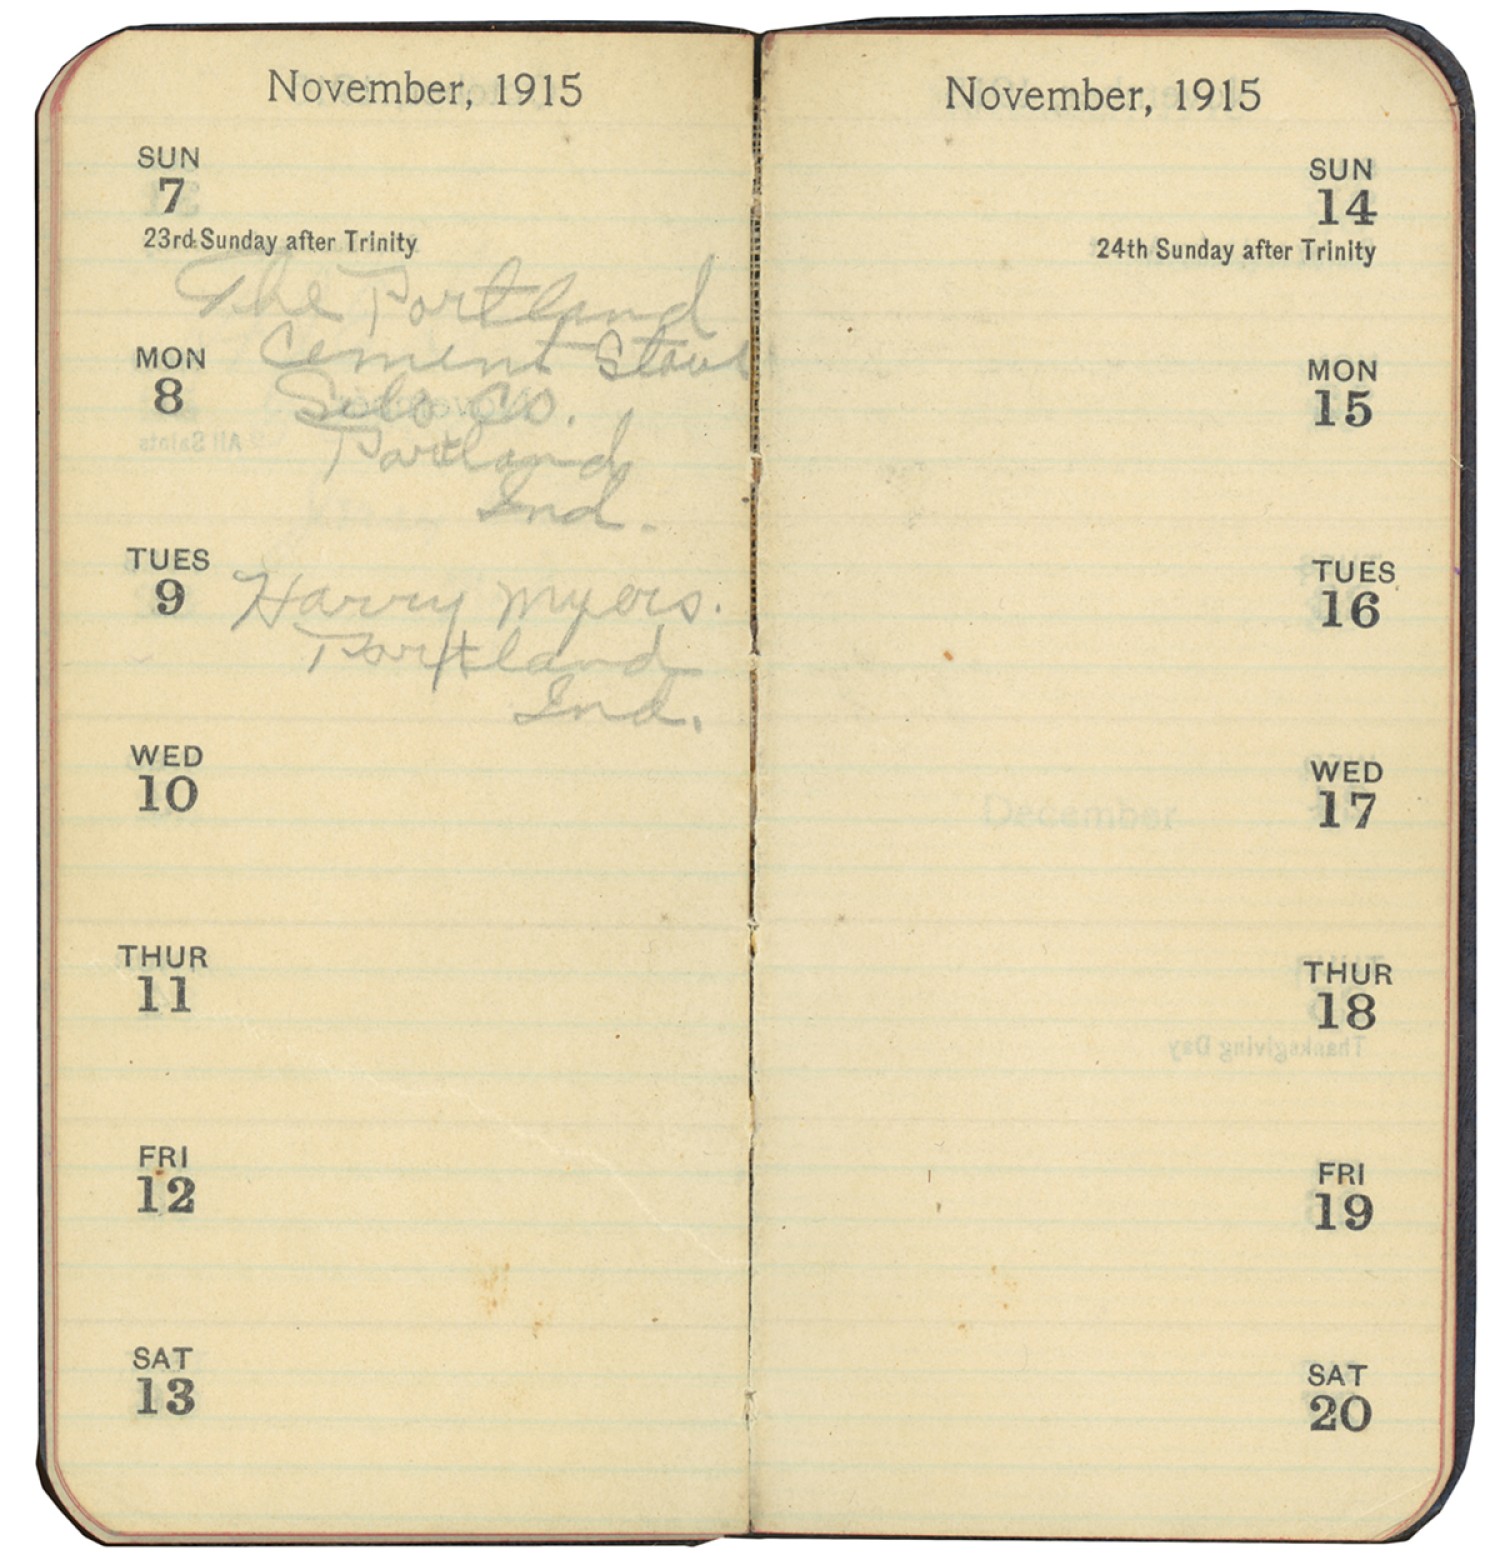 November, 1915
SUN
7
23rd Sunday after Trinity
The Portland
MON
Cement Stave
8
Silo Co.
Portland
Ind.
TUES
9
Harry Myers.
Portland
Ind.
WED
10
THUR
11
FRI
12
SAT
13
November, 1915
SUN
14
24th Sunday after Trinity
MON
15
TUES
16
WED
17
December
THUR
18
Thanksgiving Day
FRI
19
SAT
20